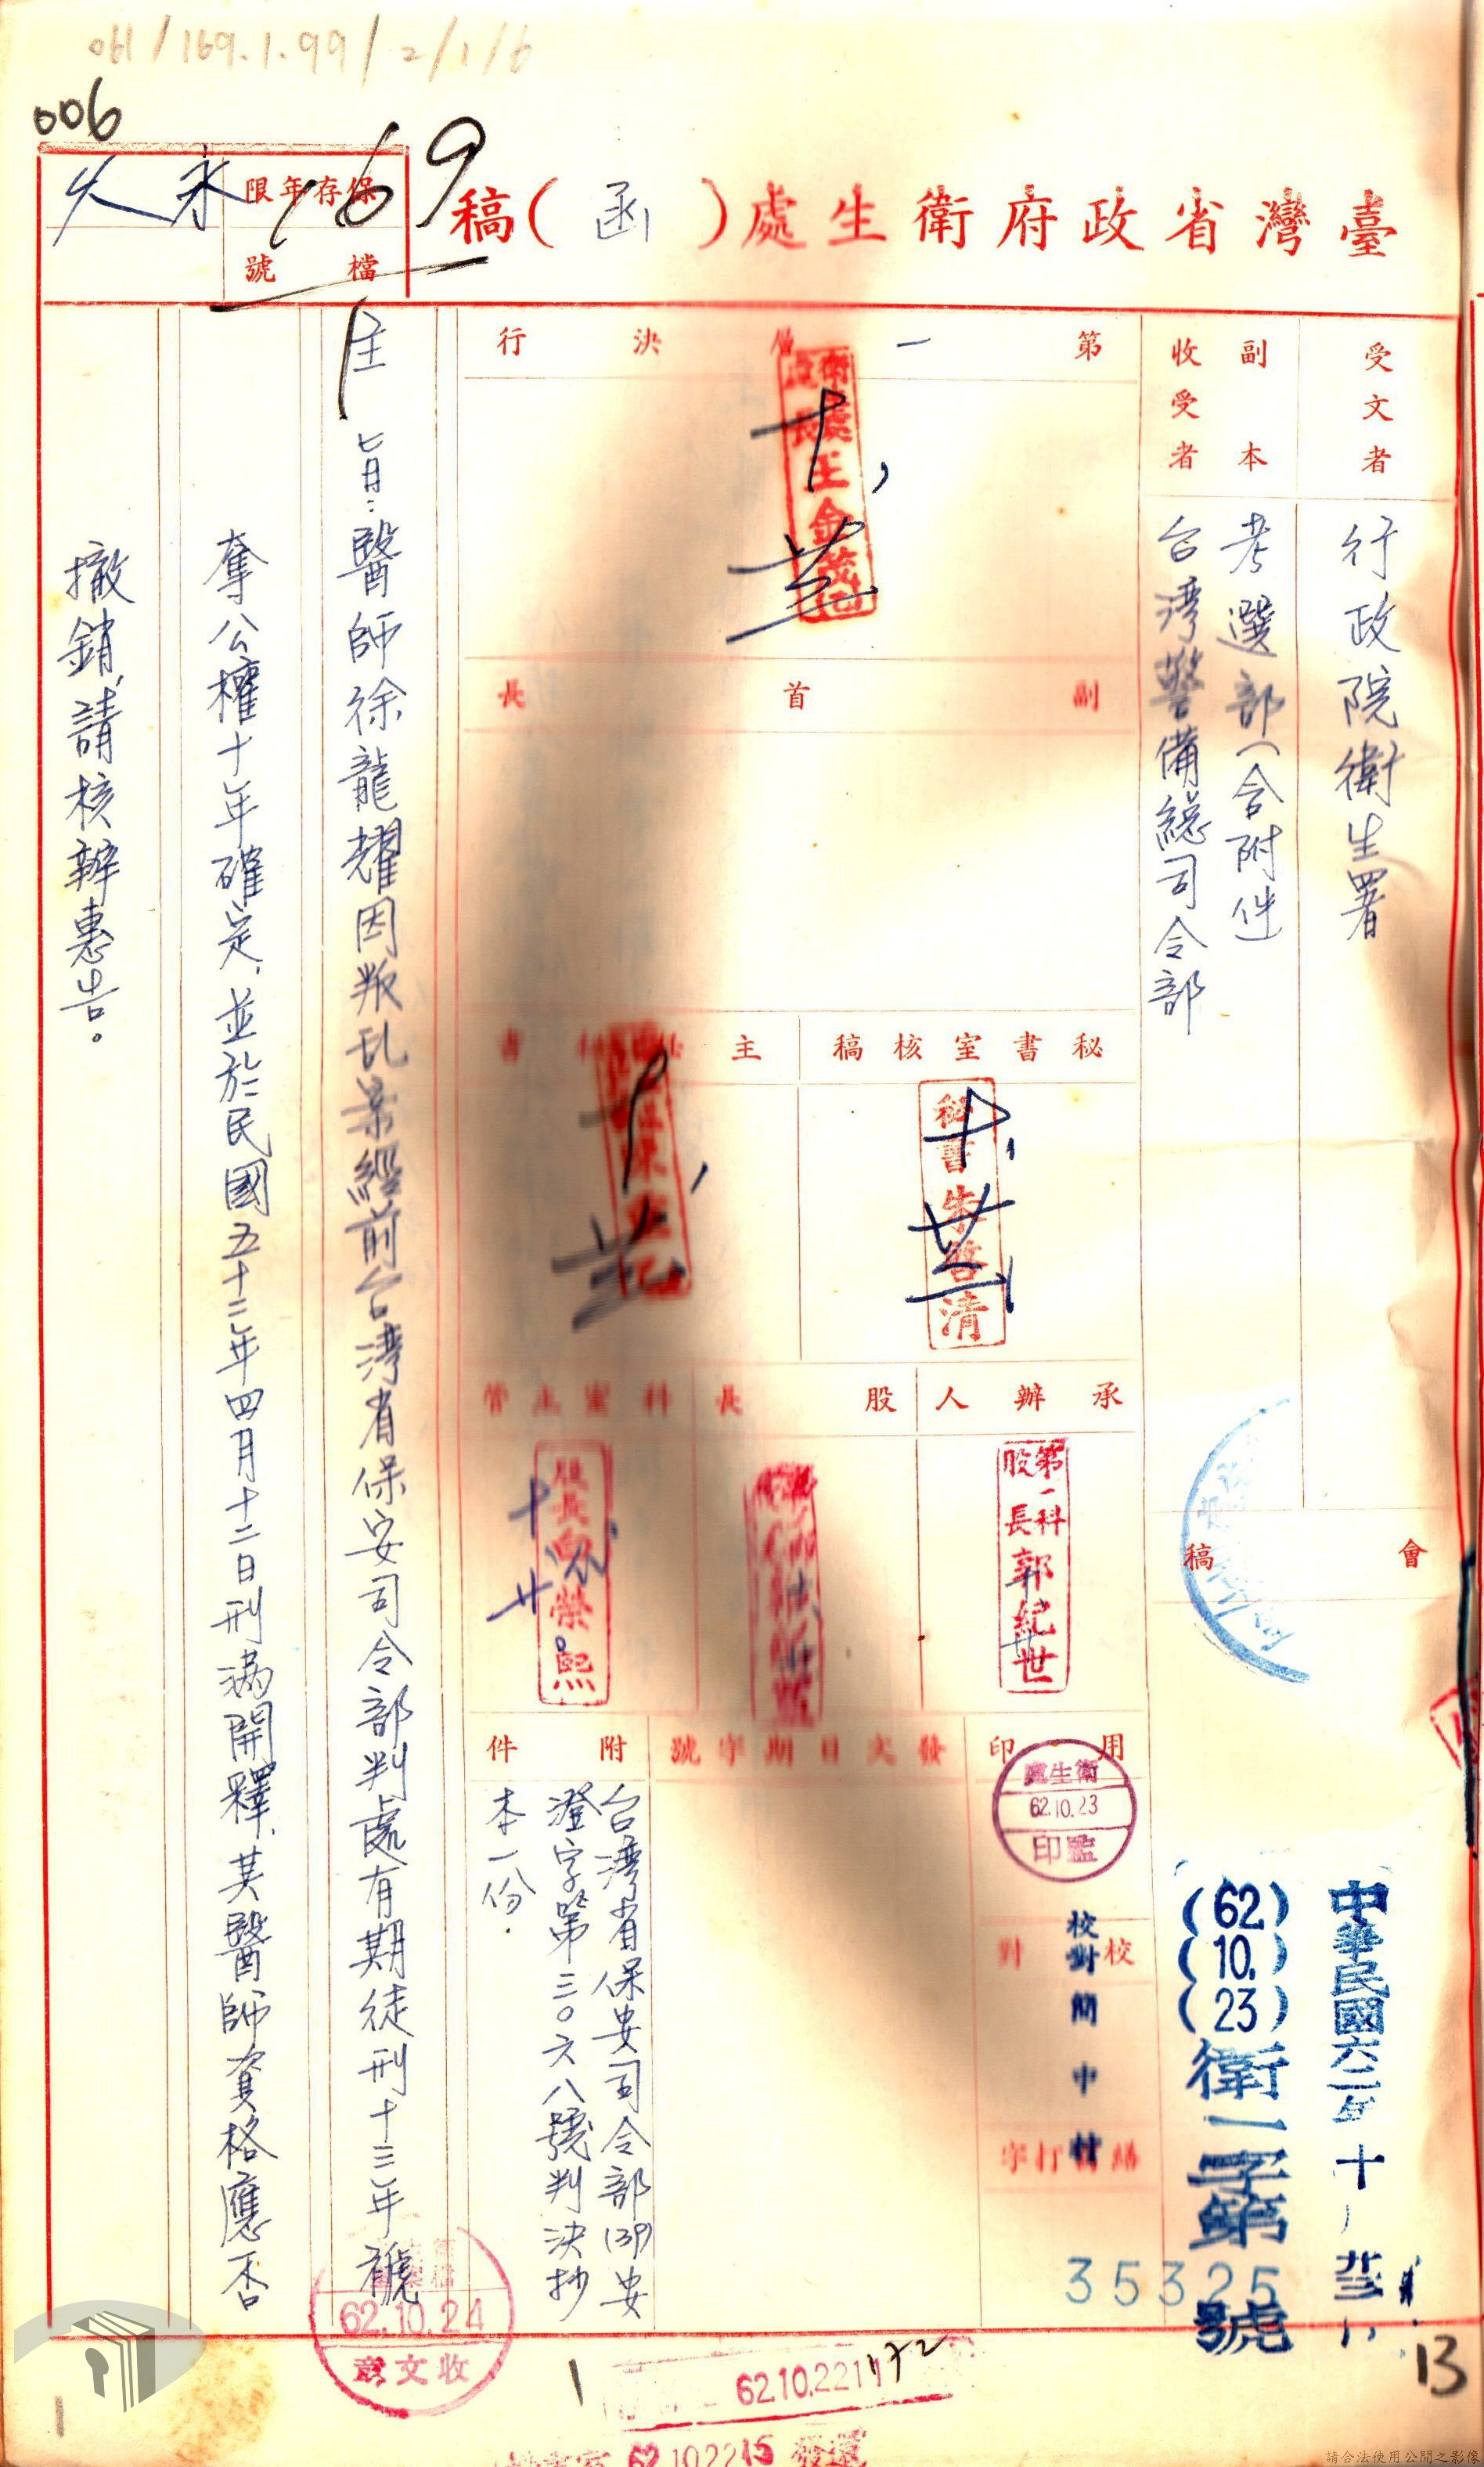 061/169.1.99/2/1/6
006
169
臺灣省政府衛生處(函)稿
保存年限
永久
檔號
受文者
行政院衛生署
副本
收受者
考選部(含附件)
台灣警備總司令部
會稿
第一層決行
副首長
秘書室核稿
秘書朱啓清
主任秘書
承辦人
第一科
股長郭紀世
股長
科室主管
股長向榮熙
用印
衛生處
62.10.23
監印
校對
校對簡中村
繕打字
發文日期字號
附件
台灣省保安司令部(39)安
澄字第三〇六八號判決抄
本一份.
中華民國六二年十廿三
(62)
(10.)
(23)
衛一字第
35325
號
主旨:醫師徐龍耀因叛乱案經前台灣省保安司令部判處有期徒刑十三年褫
奪公權十年確定,並於民國五十二年四月十二日刑滿開釋,其醫師資格應否
撤銷,請核辦惠告。
62.10.24
收文章
62.10.22
172
62.10.22 15 發還
13
請合法使用公開之影像